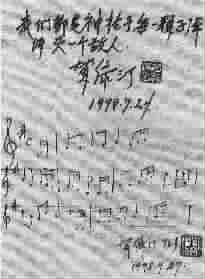 我们都是神枪手每一颗子弹
消灭一个敌人.
贺绿汀
1998.7.24
贺绿汀
1998.7.